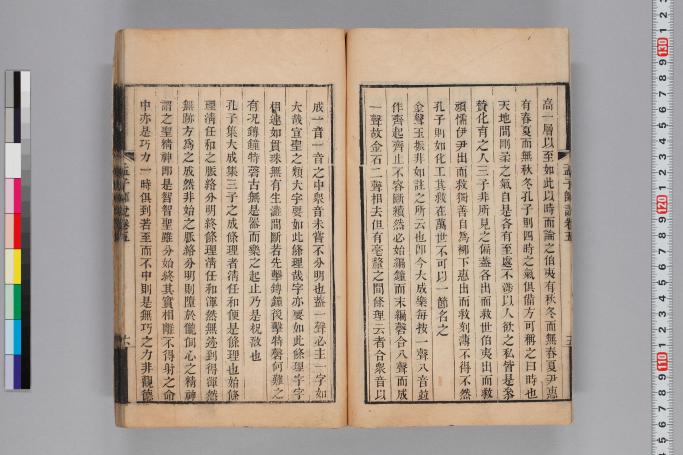 高一層以至如此以時而論之伯夷有秋冬而無春夏尹惠
有春夏而無秋冬孔子則四時之氣俱備方可稱之曰時也
天地間剛柔之氣自是各有至處不淆以人欲之私皆是參
贊化育之人三子非所見之偏蓋各出而救世伯夷出而救
頑懦伊尹出而救獨善自為柳下惠出而救刻薄不得不然
孔子則如化工其救在萬世不可以一節名之
金聲玉振非如註之所云也卽今大成樂每按一聲八音並
作齊起齊止不容斷續然必始編鐘而末編磬合八聲而成
一聲故金石二聲相去但有毫釐之間條理云者合衆音以
孟子師說卷五
五
成一音一音之中衆音未嘗不分明也蓋一聲必主一字如
大哉宣聖之類大字要如此條理哉字亦要如此條理字字
相連如貫珠無有生澁間斷若先擊鎛鐘後擊特磬何難之
有況鎛鐘特磬古無是器而樂之起止乃是柷敔也
孔子集大成集三子之成條理者清任和便是條理也始條
理清任和之脈絡分明終條理清任和渾然無迹到得渾然
無跡方為之成然非始之脈絡分明則墮於儱侗心之精神
謂之聖精神卽是智智聖雖分始終其實相離不得射之命
中亦是巧力一時俱到若至而不中則是無巧之力非觀德
孟子師說卷五
六